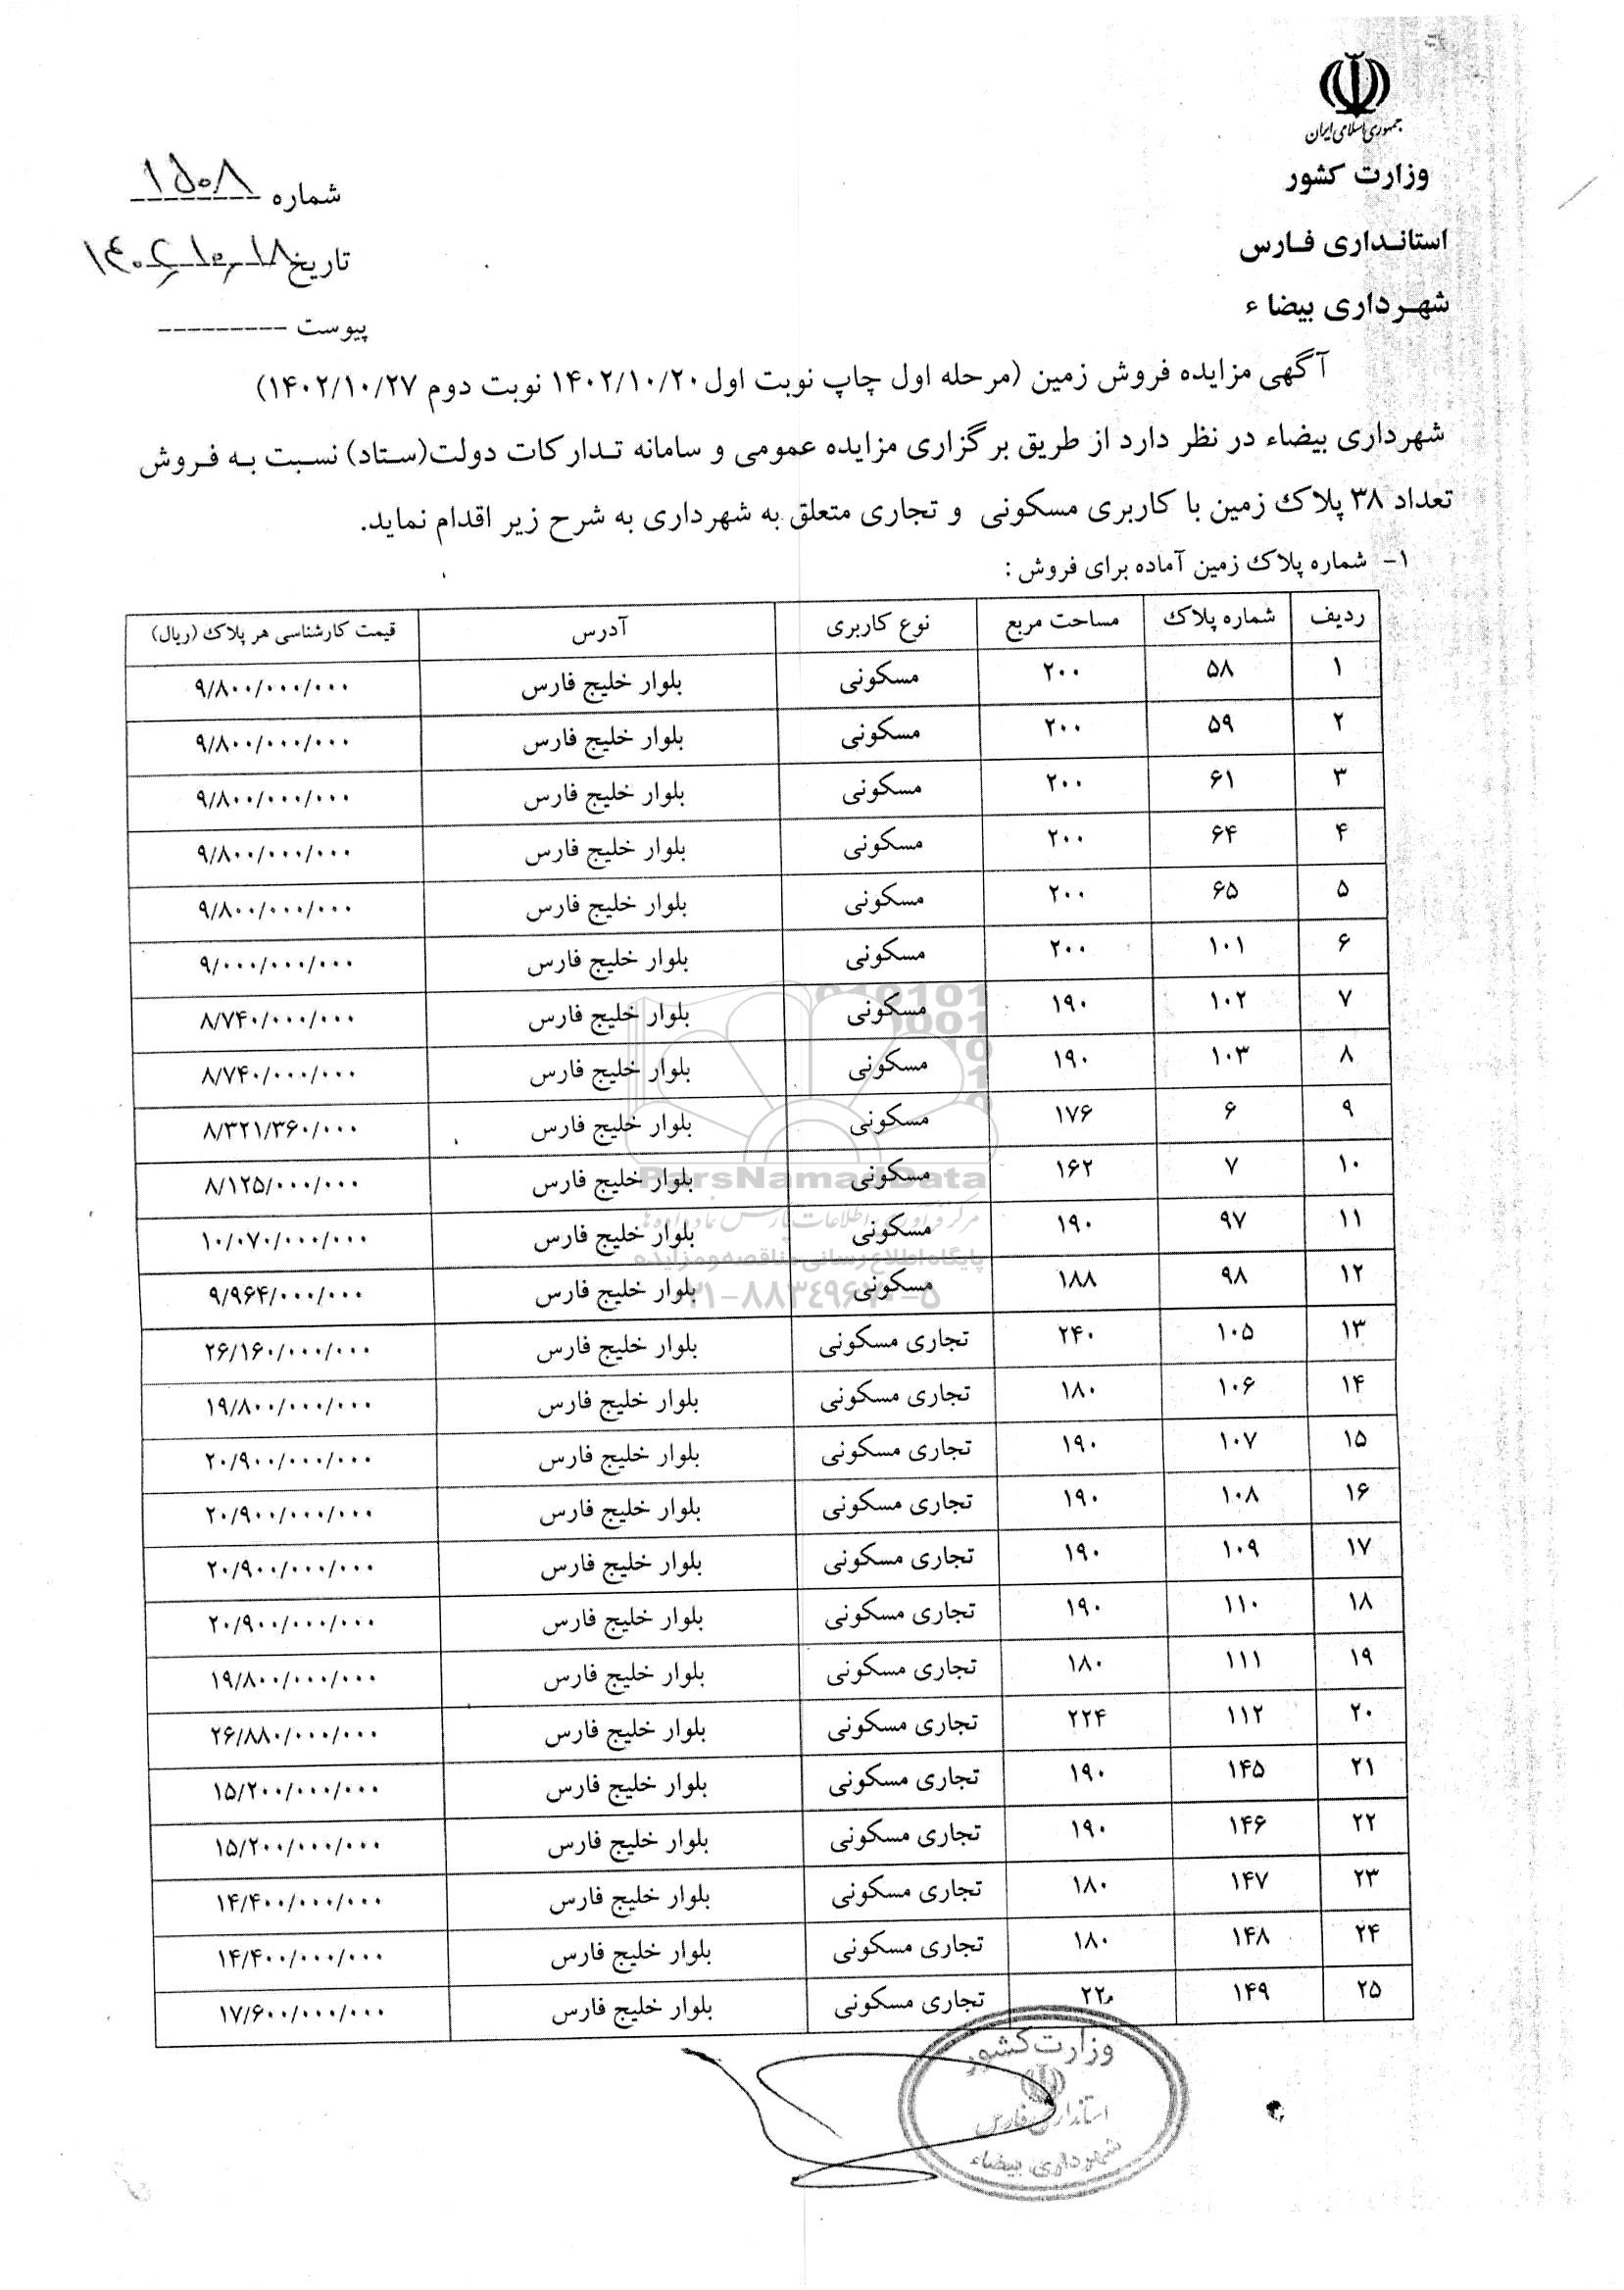 جمهوری اسلامی ایران
وزارت کشور
استانداری فارس
شهرداری بیضاء
شماره ۱۵۰۸
تاریخ ۱۴۰۲٫۱۰٫۱۸
پیوست ---------
آگهی مزایده فروش زمین (مرحله اول چاپ نوبت اول۱۴۰۲/۱۰/۲۰ نوبت دوم ۱۴۰۲/۱۰/۲۷)
شهرداری بیضاء در نظر دارد از طریق برگزاری مزایده عمومی و سامانه تدارکات دولت(ستاد) نسبت به فروش
تعداد ۳۸ پلاک زمین با کاربری مسکونی و تجاری متعلق به شهرداری به شرح زیر اقدام نماید.
۱- شماره پلاک زمین آماده برای فروش :
ردیف شماره پلاک مساحت مربع نوع کاربری آدرس قیمت کارشناسی هر پلاک (ریال)
۱ ۵۸ ۲۰۰ مسکونی بلوار خلیج فارس ۹/۸۰۰/۰۰۰/۰۰۰
۲ ۵۹ ۲۰۰ مسکونی بلوار خلیج فارس ۹/۸۰۰/۰۰۰/۰۰۰
۳ ۶۱ ۲۰۰ مسکونی بلوار خلیج فارس ۹/۸۰۰/۰۰۰/۰۰۰
۴ ۶۴ ۲۰۰ مسکونی بلوار خلیج فارس ۹/۸۰۰/۰۰۰/۰۰۰
۵ ۶۵ ۲۰۰ مسکونی بلوار خلیج فارس ۹/۸۰۰/۰۰۰/۰۰۰
۶ ۱۰۱ ۲۰۰ مسکونی بلوار خلیج فارس ۹/۰۰۰/۰۰۰/۰۰۰
۷ ۱۰۲ ۱۹۰ مسکونی بلوار خلیج فارس ۸/۷۴۰/۰۰۰/۰۰۰
۸ ۱۰۳ ۱۹۰ مسکونی بلوار خلیج فارس ۸/۷۴۰/۰۰۰/۰۰۰
۹ ۶ ۱۷۶ مسکونی بلوار خلیج فارس ۸/۳۲۱/۳۶۰/۰۰۰
۱۰ ۷ ۱۶۲ مسکونی بلوار خلیج فارس ۸/۱۲۵/۰۰۰/۰۰۰
۱۱ ۹۷ ۱۹۰ مسکونی بلوار خلیج فارس ۱۰/۰۷۰/۰۰۰/۰۰۰
۱۲ ۹۸ ۱۸۸ مسکونی بلوار خلیج فارس ۹/۹۶۴/۰۰۰/۰۰۰
۱۳ ۱۰۵ ۲۴۰ تجاری مسکونی بلوار خلیج فارس ۲۶/۱۶۰/۰۰۰/۰۰۰
۱۴ ۱۰۶ ۱۸۰ تجاری مسکونی بلوار خلیج فارس ۱۹/۸۰۰/۰۰۰/۰۰۰
۱۵ ۱۰۷ ۱۹۰ تجاری مسکونی بلوار خلیج فارس ۲۰/۹۰۰/۰۰۰/۰۰۰
۱۶ ۱۰۸ ۱۹۰ تجاری مسکونی بلوار خلیج فارس ۲۰/۹۰۰/۰۰۰/۰۰۰
۱۷ ۱۰۹ ۱۹۰ تجاری مسکونی بلوار خلیج فارس ۲۰/۹۰۰/۰۰۰/۰۰۰
۱۸ ۱۱۰ ۱۹۰ تجاری مسکونی بلوار خلیج فارس ۲۰/۹۰۰/۰۰۰/۰۰۰
۱۹ ۱۱۱ ۱۸۰ تجاری مسکونی بلوار خلیج فارس ۱۹/۸۰۰/۰۰۰/۰۰۰
۲۰ ۱۱۲ ۲۲۴ تجاری مسکونی بلوار خلیج فارس ۲۶/۸۸۰/۰۰۰/۰۰۰
۲۱ ۱۴۵ ۱۹۰ تجاری مسکونی بلوار خلیج فارس ۱۵/۲۰۰/۰۰۰/۰۰۰
۲۲ ۱۴۶ ۱۹۰ تجاری مسکونی بلوار خلیج فارس ۱۵/۲۰۰/۰۰۰/۰۰۰
۲۳ ۱۴۷ ۱۸۰ تجاری مسکونی بلوار خلیج فارس ۱۴/۴۰۰/۰۰۰/۰۰۰
۲۴ ۱۴۸ ۱۸۰ تجاری مسکونی بلوار خلیج فارس ۱۴/۴۰۰/۰۰۰/۰۰۰
۲۵ ۱۴۹ ۲۲۰ تجاری مسکونی بلوار خلیج فارس ۱۷/۶۰۰/۰۰۰/۰۰۰
ParsNamadData
پایگاه اطلاع رسانی مناقصه و مزایده
وزارت کشور
استانداری فارس
شهرداری بیضاء